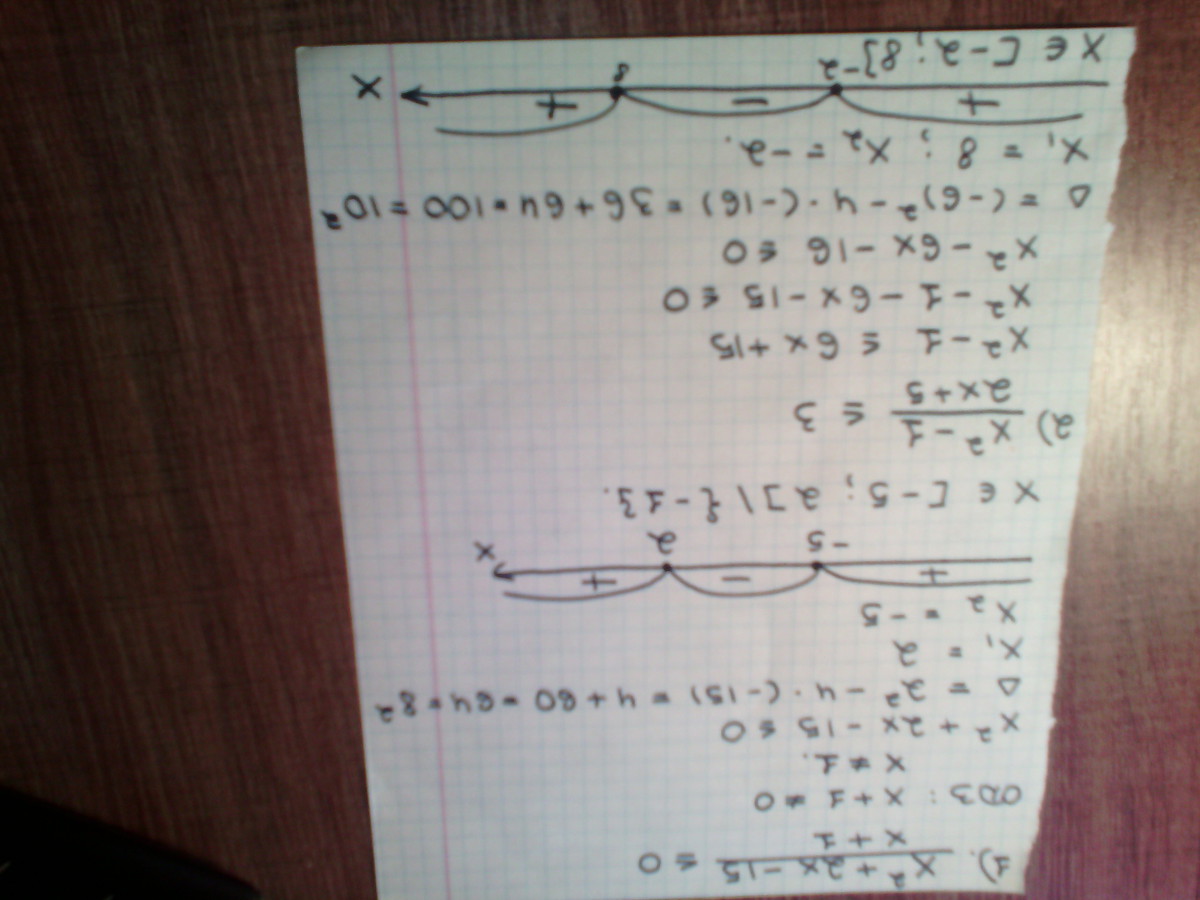 1). x² + 2x - 15 / x + 1 ≤ 0
ОДЗ: x + 1 ≠ 0
x ≠ 1.
x² + 2x - 15 ≤ 0
D = 2² - 4 · (-15) = 4 + 60 = 64 = 8²
x₁ = 2
x₂ = -5
+ - + -5 2 x
x ∈ [-5; 2] \ {-1}.
2) x² - 1 / 2x + 5 ≤ 3
x² - 1 ≤ 6x + 15
x² - 1 - 6x - 15 ≤ 0
x² - 6x - 16 ≤ 0
D = (-6)² - 4 · (-16) = 36 + 64 = 100 = 10²
x₁ = 8; x₂ = -2.
+ - + -2 8 x
x ∈ [-2; 8]